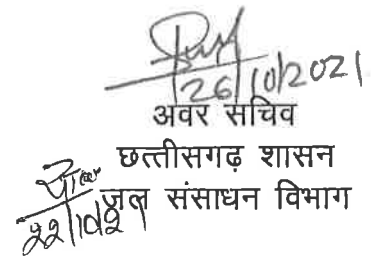 26/10/2021
अवर सचिव
छत्तीसगढ़ शासन
जल संसाधन विभाग
22/10/21